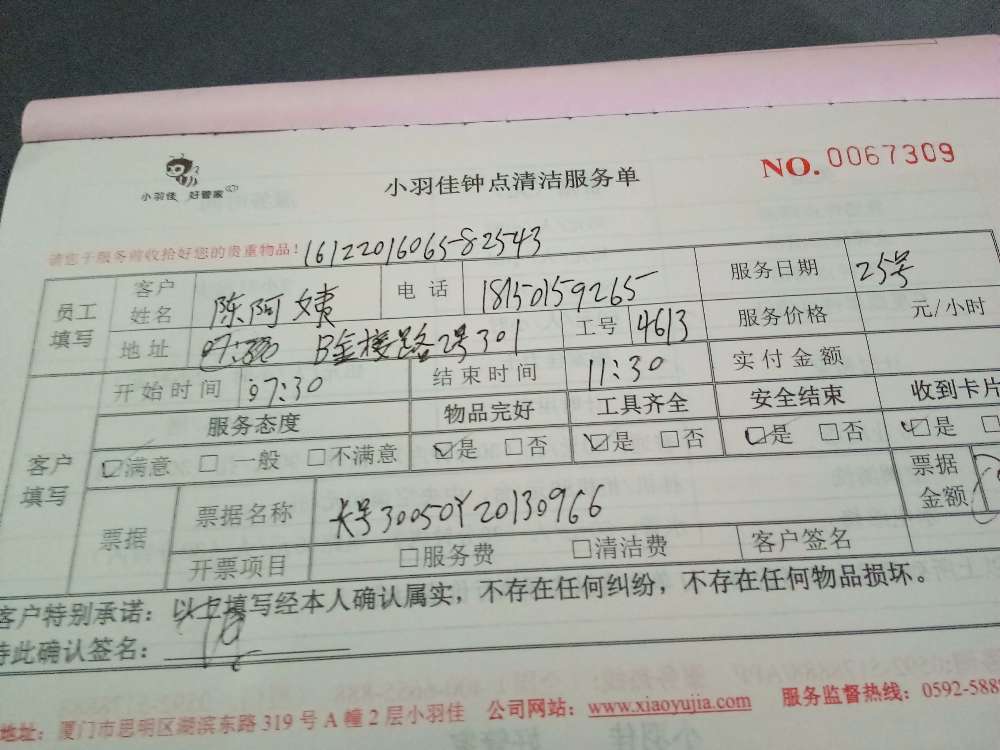 小羽佳 好管家
小羽佳钟点清洁服务单
NO. 0067309
请您于服务前收拾好您的贵重物品! 16122016065-82543
员工填写 客户姓名 陈阿姨 电话 18150159265 服务日期 25号
地址 2号301 工号 4613 服务价格 元/小时
客户填写 开始时间 07:30 结束时间 11:30 实付金额
服务态度 物品完好 工具齐全 安全结束 收到卡片
☑满意 □一般 □不满意 ☑是 □否 ☑是 □否 ☑是 □否 ☑是 □
票据 票据名称 卡号30050Y20130966 票据金额
开票项目 □服务费 □清洁费 客户签名
客户特别承诺：以上填写经本人确认属实，不存在任何纠纷，不存在任何物品损坏。
特此确认签名：
地址：厦门市思明区湖滨东路319号A幢2层小羽佳 公司网站：www.xiaoyujia.com 服务监督热线：0592-5888